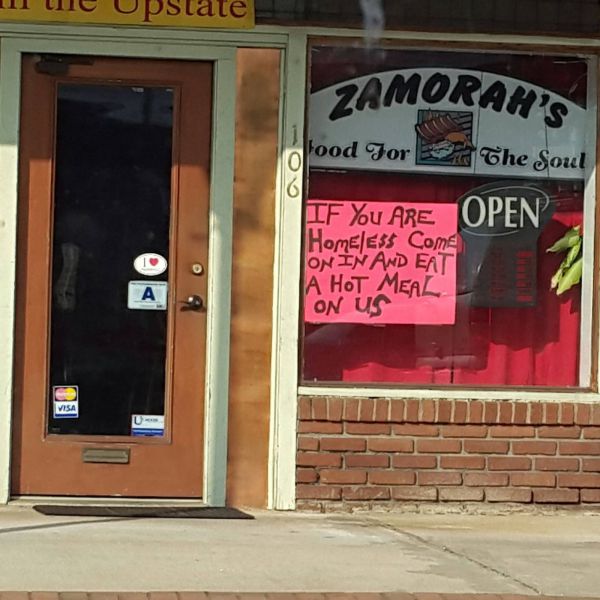 in the Upstate
106
ZAMORAH'S
Food For The Soul
OPEN
IF YOU ARE
HOMElESS COME
ON IN AND EAT
A HOT MEAL
ON US
I ♥
A
VISA